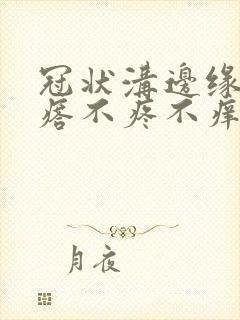 冠状溝邊缘
痞不疼不痒
月夜